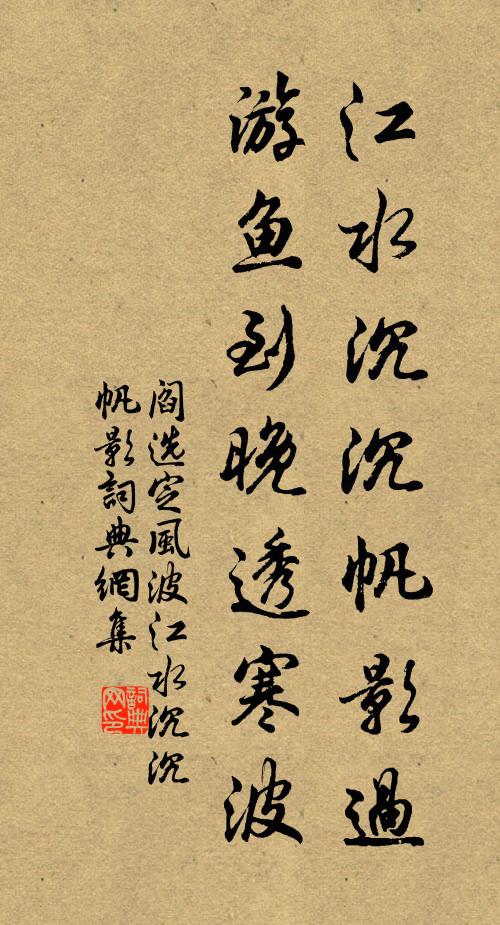 江水沉沉帆影過
游鱼到晚透寒波
阎选定風波江水沉沉
帆影詞典網集
詞典網印